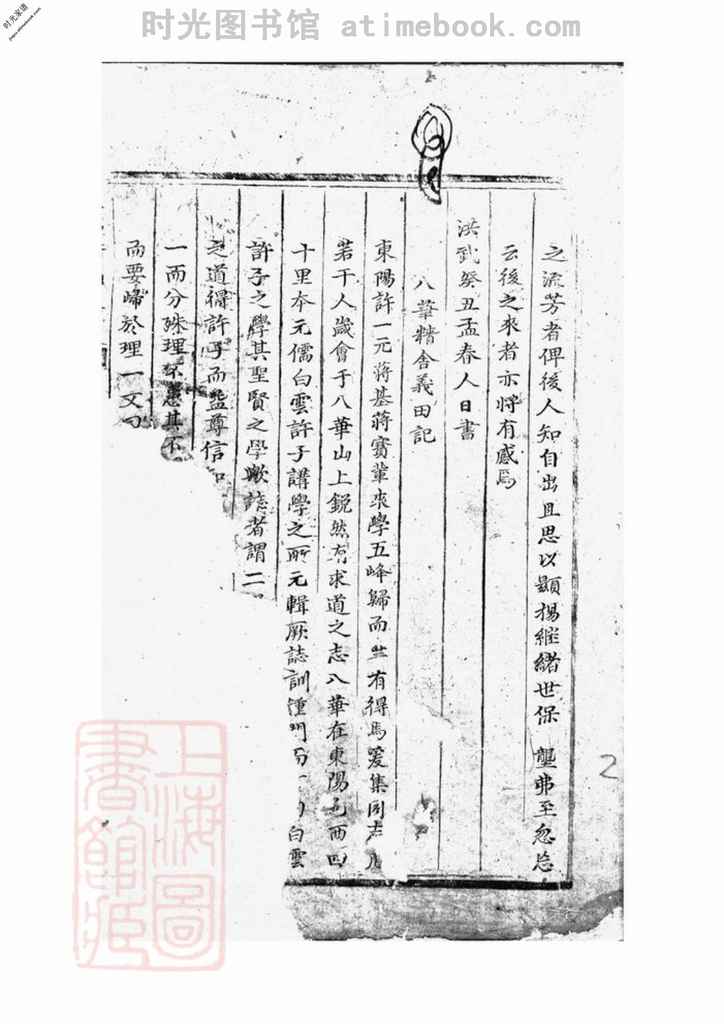 时光图书馆 atimebook.com
时光家谱
之流芳者俾後人知自出且思以顯揚繼緒世保壟弗至忽忘
云後之來者亦將有感焉
洪武癸丑孟春人日書
八華精舍義田記
東陽許一元蔣基蔣賓輩來學五峰歸而有得焉爰集同志
若干人歲會于八華山上銳然有求道之志八華在東陽西四
十里本元儒白雲許子講學之所元輯厥誌訓白雲
許子之學其聖賢之學歟誌者謂二
之道得許子而益尊信
一而分殊理不患其不
而要歸於理一文
2
上海圖書館藏